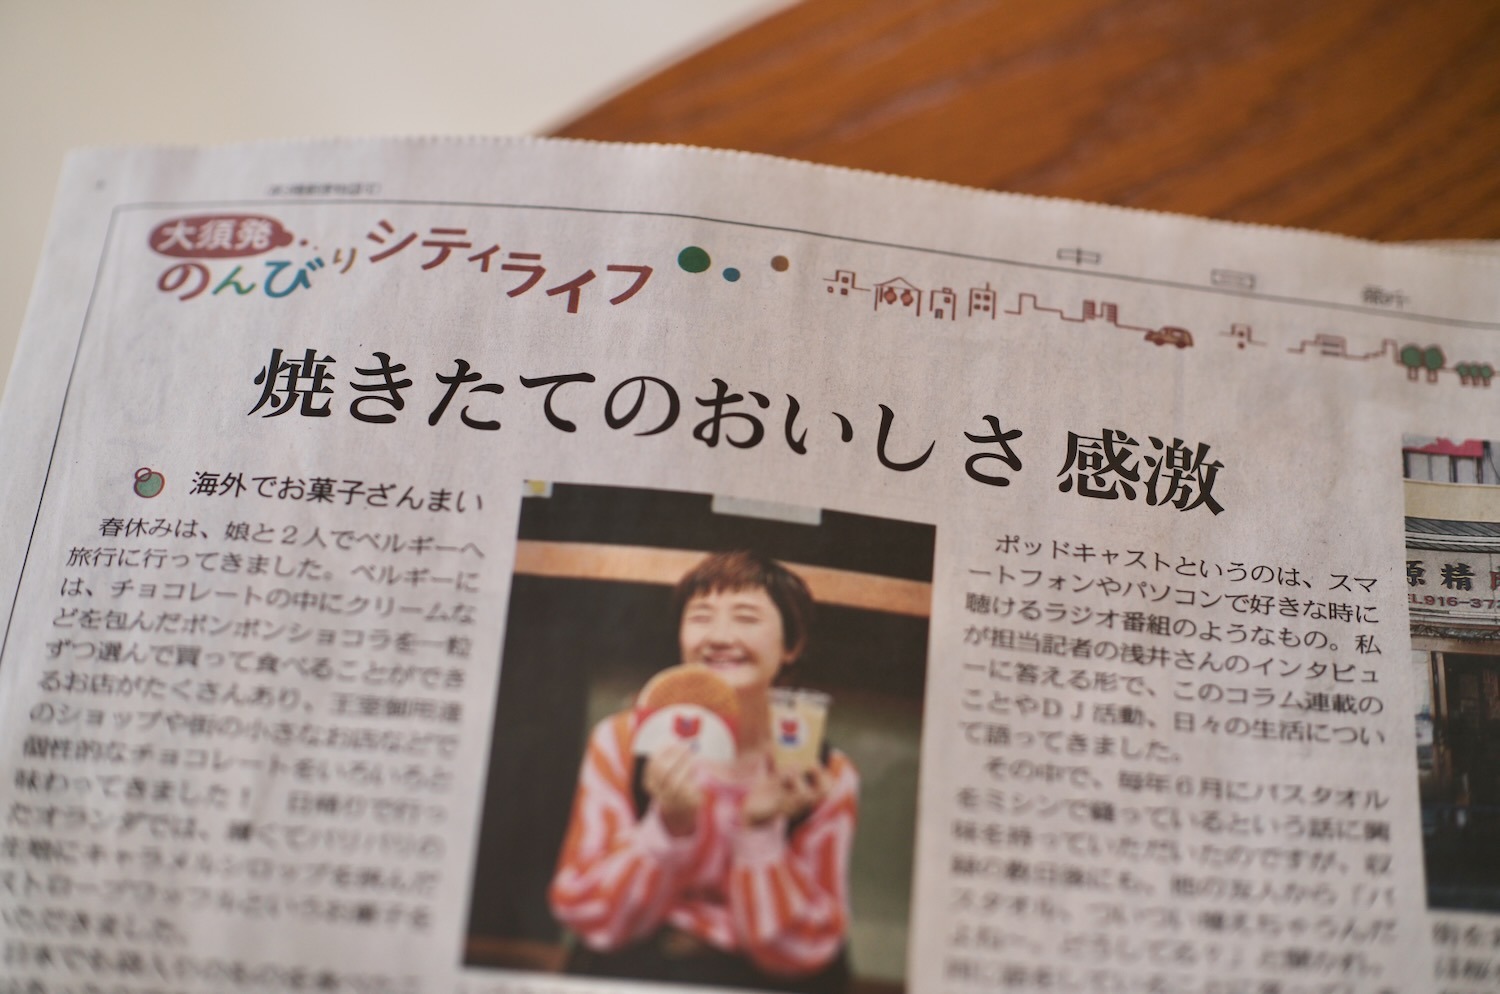 大須発
のんびりシティライフ
焼きたてのおいしさ 感激
海外でお菓子ざんまい
春休みは、娘と2人でベルギーへ
旅行に行ってきました。ベルギーに
は、チョコレートの中にクリームな
どを包んだボンボンショコラを一粒
ずつ選んで買って食べることができ
るお店がたくさんあり、王室御用達
のショップや街の小さなお店などで
個性的なチョコレートをいろいろと
味わってきました! 日帰りで行っ
たオランダでは、薄くてパリパリの
生地にキャラメルシロップを挟んだ
ストロープワッフルというお菓子を
いただきました。
ポッドキャストというのは、スマ
ートフォンやパソコンで好きな時に
聴けるラジオ番組のようなもの。私
が担当記者の浅井さんのインタビュ
ーに答える形で、このコラム連載の
ことやDJ活動、日々の生活につい
て語ってきました。
その中で、毎年6月にバスタオル
をミシンで縫っているという話に興
味を持っていただいたのですが、収
録の数日後にも、他の友人から「バ
スタオル、ついつい増えちゃうんだ
よねー。どうしてる?」と聞かれ、
源精
916-373